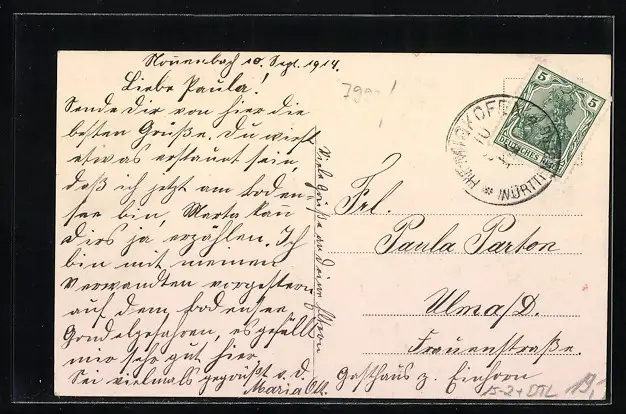 Nonnenbach 10. Sept. 1914.
Liebe Paula!
Sende Dir von hier die
besten Grüße. Du wirst
etwas erstaunt sein,
daß ich jetzt am Boden-
see bin, Marta kan
Dirs ja erzählen. Ich
bin mit meinen
Verwandten vorgestern
auf dem Bodensee
Gondelgefahren, es gefällt
mir sehr gut hier.
Sei vielmals gegrüßt v. d.
Maria
Viele Grüße an Deine Eltern
5 5
DEUTSCHES REICH
HEMIGKOFEN
10
WÜRTT
Frl.
Paula Parton
Ulm a/D.
Frauenstraße.
Gasthaus z. Einhorn
19,-